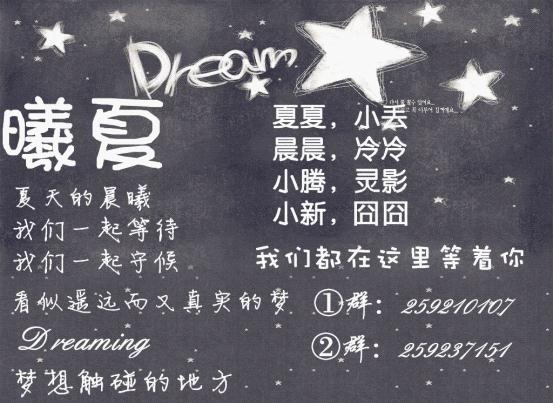 Dream
曦夏
夏天的晨曦
我们一起等待
我们一起守候
看似遥远而又真实的梦
Dreaming
梦想触碰的地方
夏夏，小丢
晨晨，冷冷
小腾，灵影
小新，囧囧
我们都在这里等着你
①群：259210107
②群：259237151